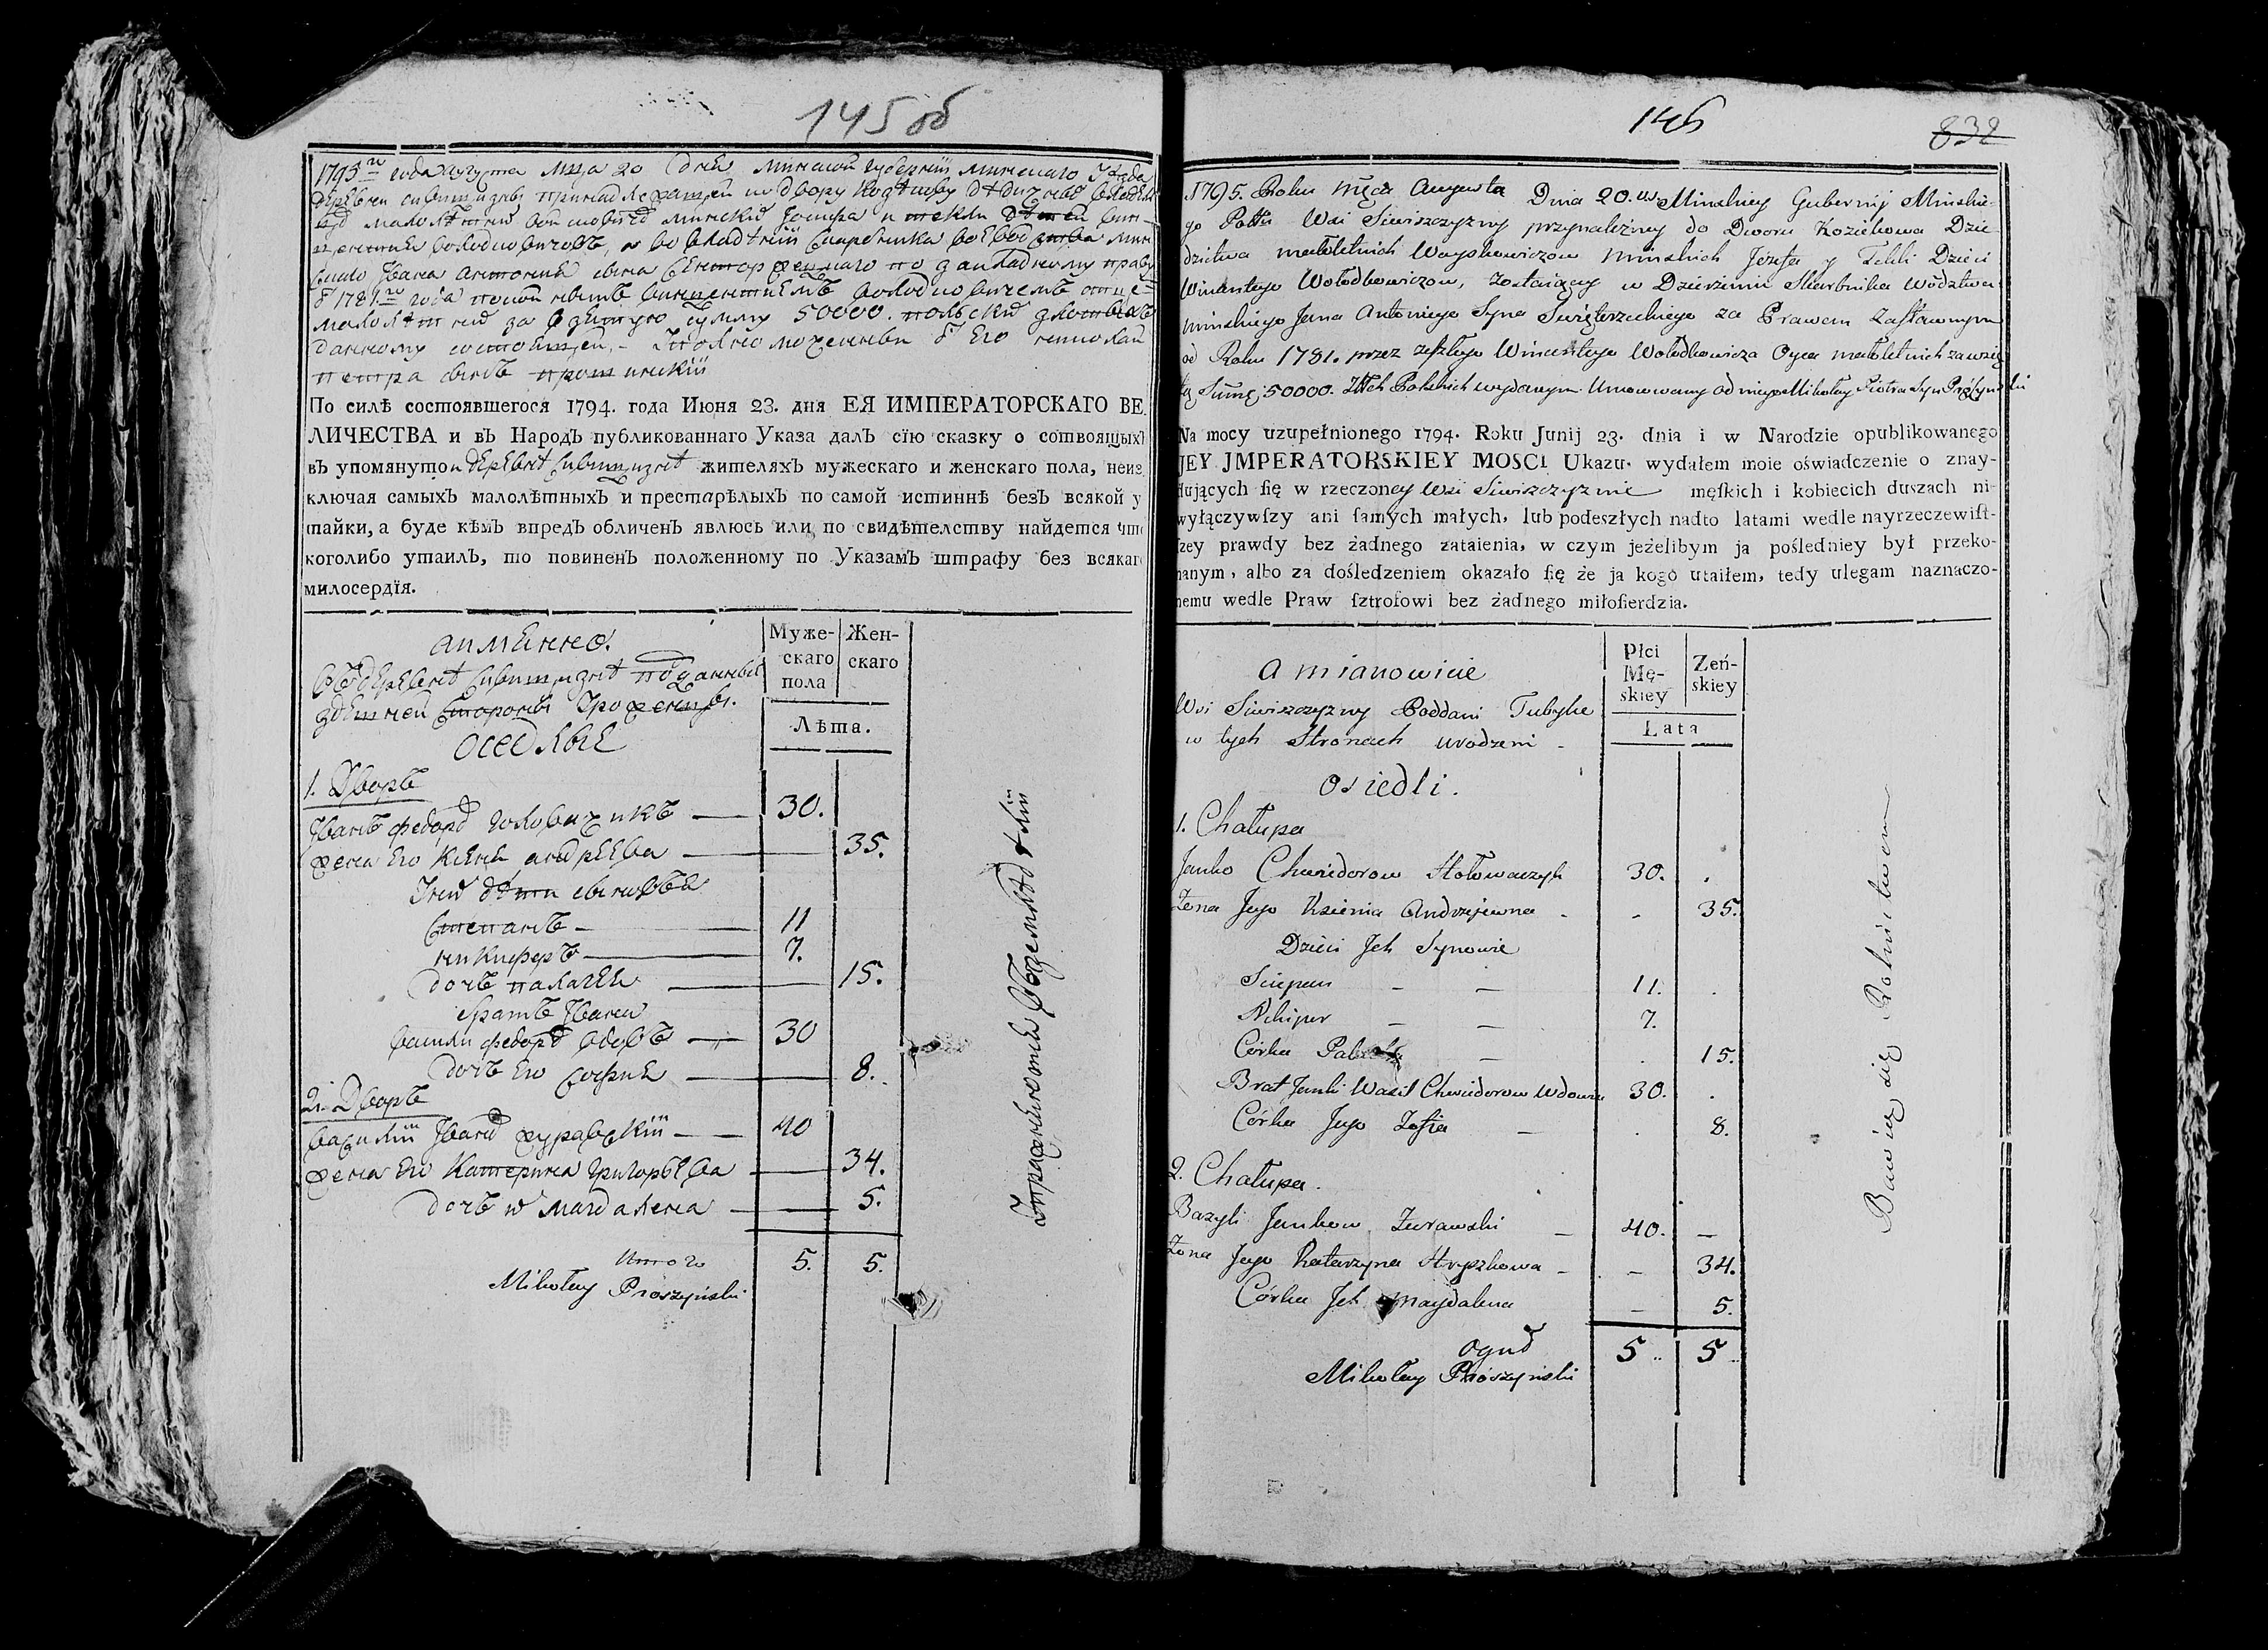 145об
1795го года августа мца 20 дня минской губернии минскаго уезда
деревни сивищизны принадлежащей ко двору
малолетних войсковичов минских
за взятую сумму 50000. польских злотых
данному состоящей, его николай
петра сынъ
По силѣ состоявшегося 1794. года Июня 23. дня ЕЯ ИМПЕРАТОРСКАГО ВЕ
ЛИЧЕСТВА и въ Народъ публикованнаго Указа далъ сїю сказку о сотвоящыхъ
въ упомянутои деревне Сивищизне жителяхъ мужескаго и женскаго пола, неиз
ключая самыхъ малолѣтныхъ и престарѣлыхъ по самой истиннѣ безъ всякой у
тайки, а буде кѣмъ впредъ обличенъ явлюсь или по свидѣтелству найдется что
коголибо утаилъ, то повиненъ положенному по Указамъ штрафу без всякаго
милосердїя.
аименно.
Муже-
скаго
пола
Жен-
скаго
Лѣта.
В деревне Сивищизне подданныи
здешней стороны уроженцы.
оседлые
1. Дворъ
Иванъ федоров головачикъ 30.
жена его ксеня андреева 35.
Их дети сыновья
Степанъ 11
никиферъ 7.
дочь палагея 15.
братъ Ивана
васили федоров вдовъ 30
дочь его софия 8.
2. Дворъ
василий Иванов журавский 40
жена его катерина григорьева 34.
дочь их магдалена 5.
итого 5. 5.
Mikołay Prószyński
Упражняются в земледелии
146
832
1795. Roku Mśca Augusta Dnia 20. w Minskiey Gubernij Minskie-
go Pottu Wsi Siwiszczyzny przynależney do Dworu Koziekowa Dzie-
dzictwa małoletnich Woyskowiczow Minskich Józefa y Tekli Dzieci
Winentego Wołodkowiczow, zostaiącey w Dzierżeniu Skarbnika Wództwa
Minskiego Jana Antoniego Syna Swięterzeckiego za Prawem Zastawnym
od Roku 1781. przez zeszłego Winentego Wołodkowicza Oyca małoletnich za wzię
tą Summę 50000. Złtch Polskich wydanym. Umocowany od niego Mikołay Piotra Syn Prószynski
Na mocy uzupełnionego 1794. Roku Junij 23. dnia i w Narodzie opublikowanego
JEY JMPERATORSKIEY MOSCI Ukazu. wydałem moie oświadczenie o znay-
duiących ſię w rzeczoney Wsi Siwiszczyznie męſkich i kobiecich duszach ni-
wyłączywſzy ani ſamych małych, lub podeszłych nadto latami wedle nayrzeczewiſt-
ſzey prawdy bez żadnego zataienia, w czym jeżelibym ja poſledniey był przeko-
nanym, albo za dośledzeniem okazało ſię że ja kogo utaiłem, tedy ulegam naznaczo-
nemu wedle Praw ſztrofowi bez żadnego miłoſierdzia.
a mianowicie
Płci
Mę-
skiey
Zeń-
skiey
Lata
Wsi Siwiszczyzny Poddani Tubylce
w tych Stronach urodzeni
Osiedli.
1. Chałupa
Janko Chwiedorow Hołowaczyk 30.
Żona Jego Ksienia Andrzejewna 35.
Dzieci Jch Synowie
Sciepan 11.
Nikiper 7.
Córka 15.
Brat Janki Wasil Chwiedorow wdowiec 30.
Córka Jego Zofia 8.
2. Chałupa.
Bazyli Jankow Żurawski 40.
Żona Jego Katarzyna Hryszkowa 34.
Córka Jch Magdalena 5.
Oguł 5 5
Mikołay Prószyński
Bawią się Rolnictwem